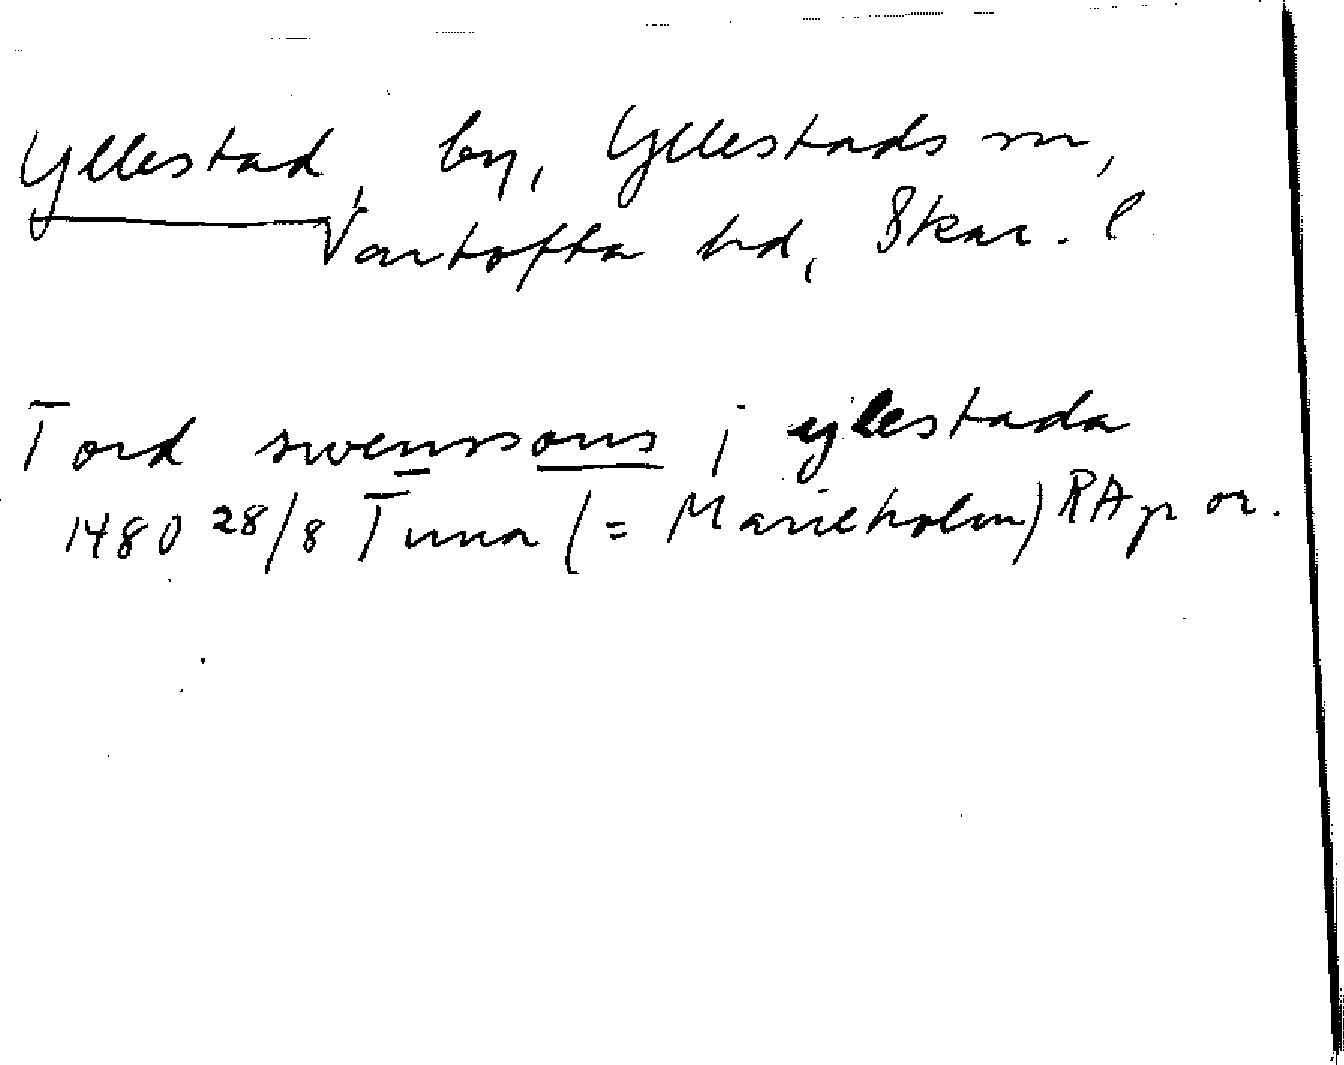 Yllestad, by, Yllestads sn,
Vartofta hd, Skar. l
Tord swenssons j yllestada
1480 28/8 Tuna (= Marieholm) RAp or.